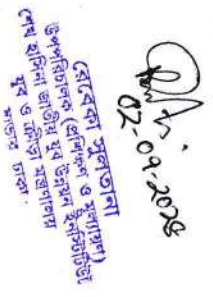 ০২-০৯-২০২৪
রেবেকা সুলতানা
উপপরিচালক ও মূল্যায়ন)
শেখ হাসিনা জাতীয় যুব উন্নয়ন ইনস্টিটিউট
যুব ও ক্রীড়া মন্ত্রণালয়
সাভার, ঢাকা।